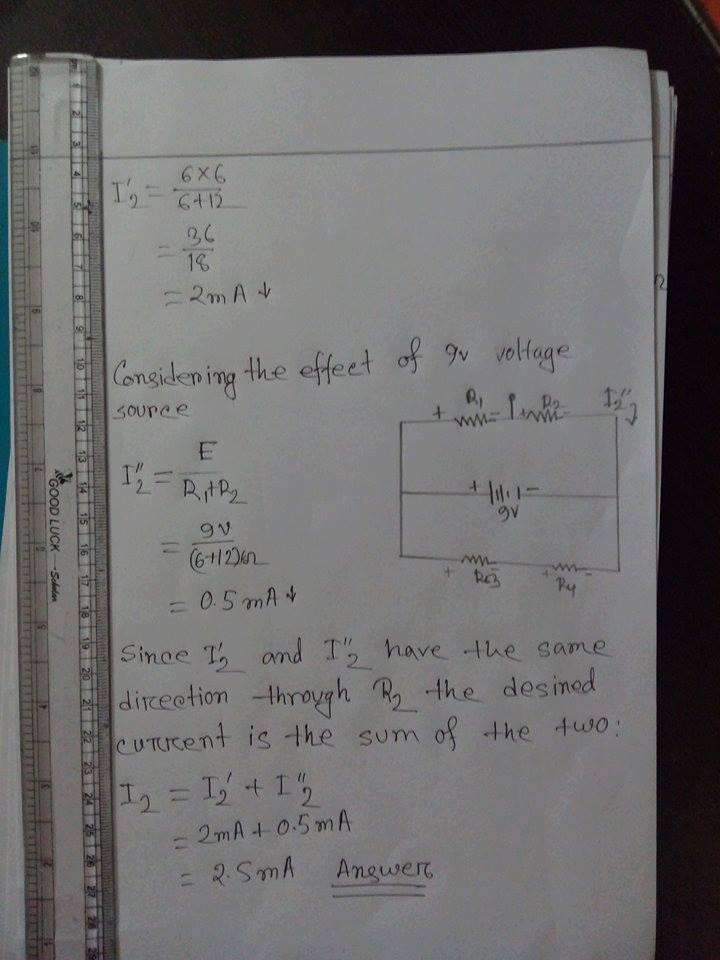 I'₂ = 6×6 / 6+12
= 36 / 18
= 2mA ↓
Considering the effect of 9v voltage
source
I''₂ = E / R₁+R₂
= 9v / (6+12)kΩ
= 0.5 mA ↓
+ R₁ - + R₂ - I₂''
+ - 9v
+ R3 - + R4 -
Since I'₂ and I''₂ have the same
direction through R₂ the desired
current is the sum of the two:
I₂ = I₂' + I''₂
= 2mA + 0.5mA
= 2.5mA Answer
GOOD LUCK - Scholar
1 2 3 4 5 6 7 8 9 10 11 12 13 14 15 16 17 18 19 20 21 22 23 24 25 26 27 28 29